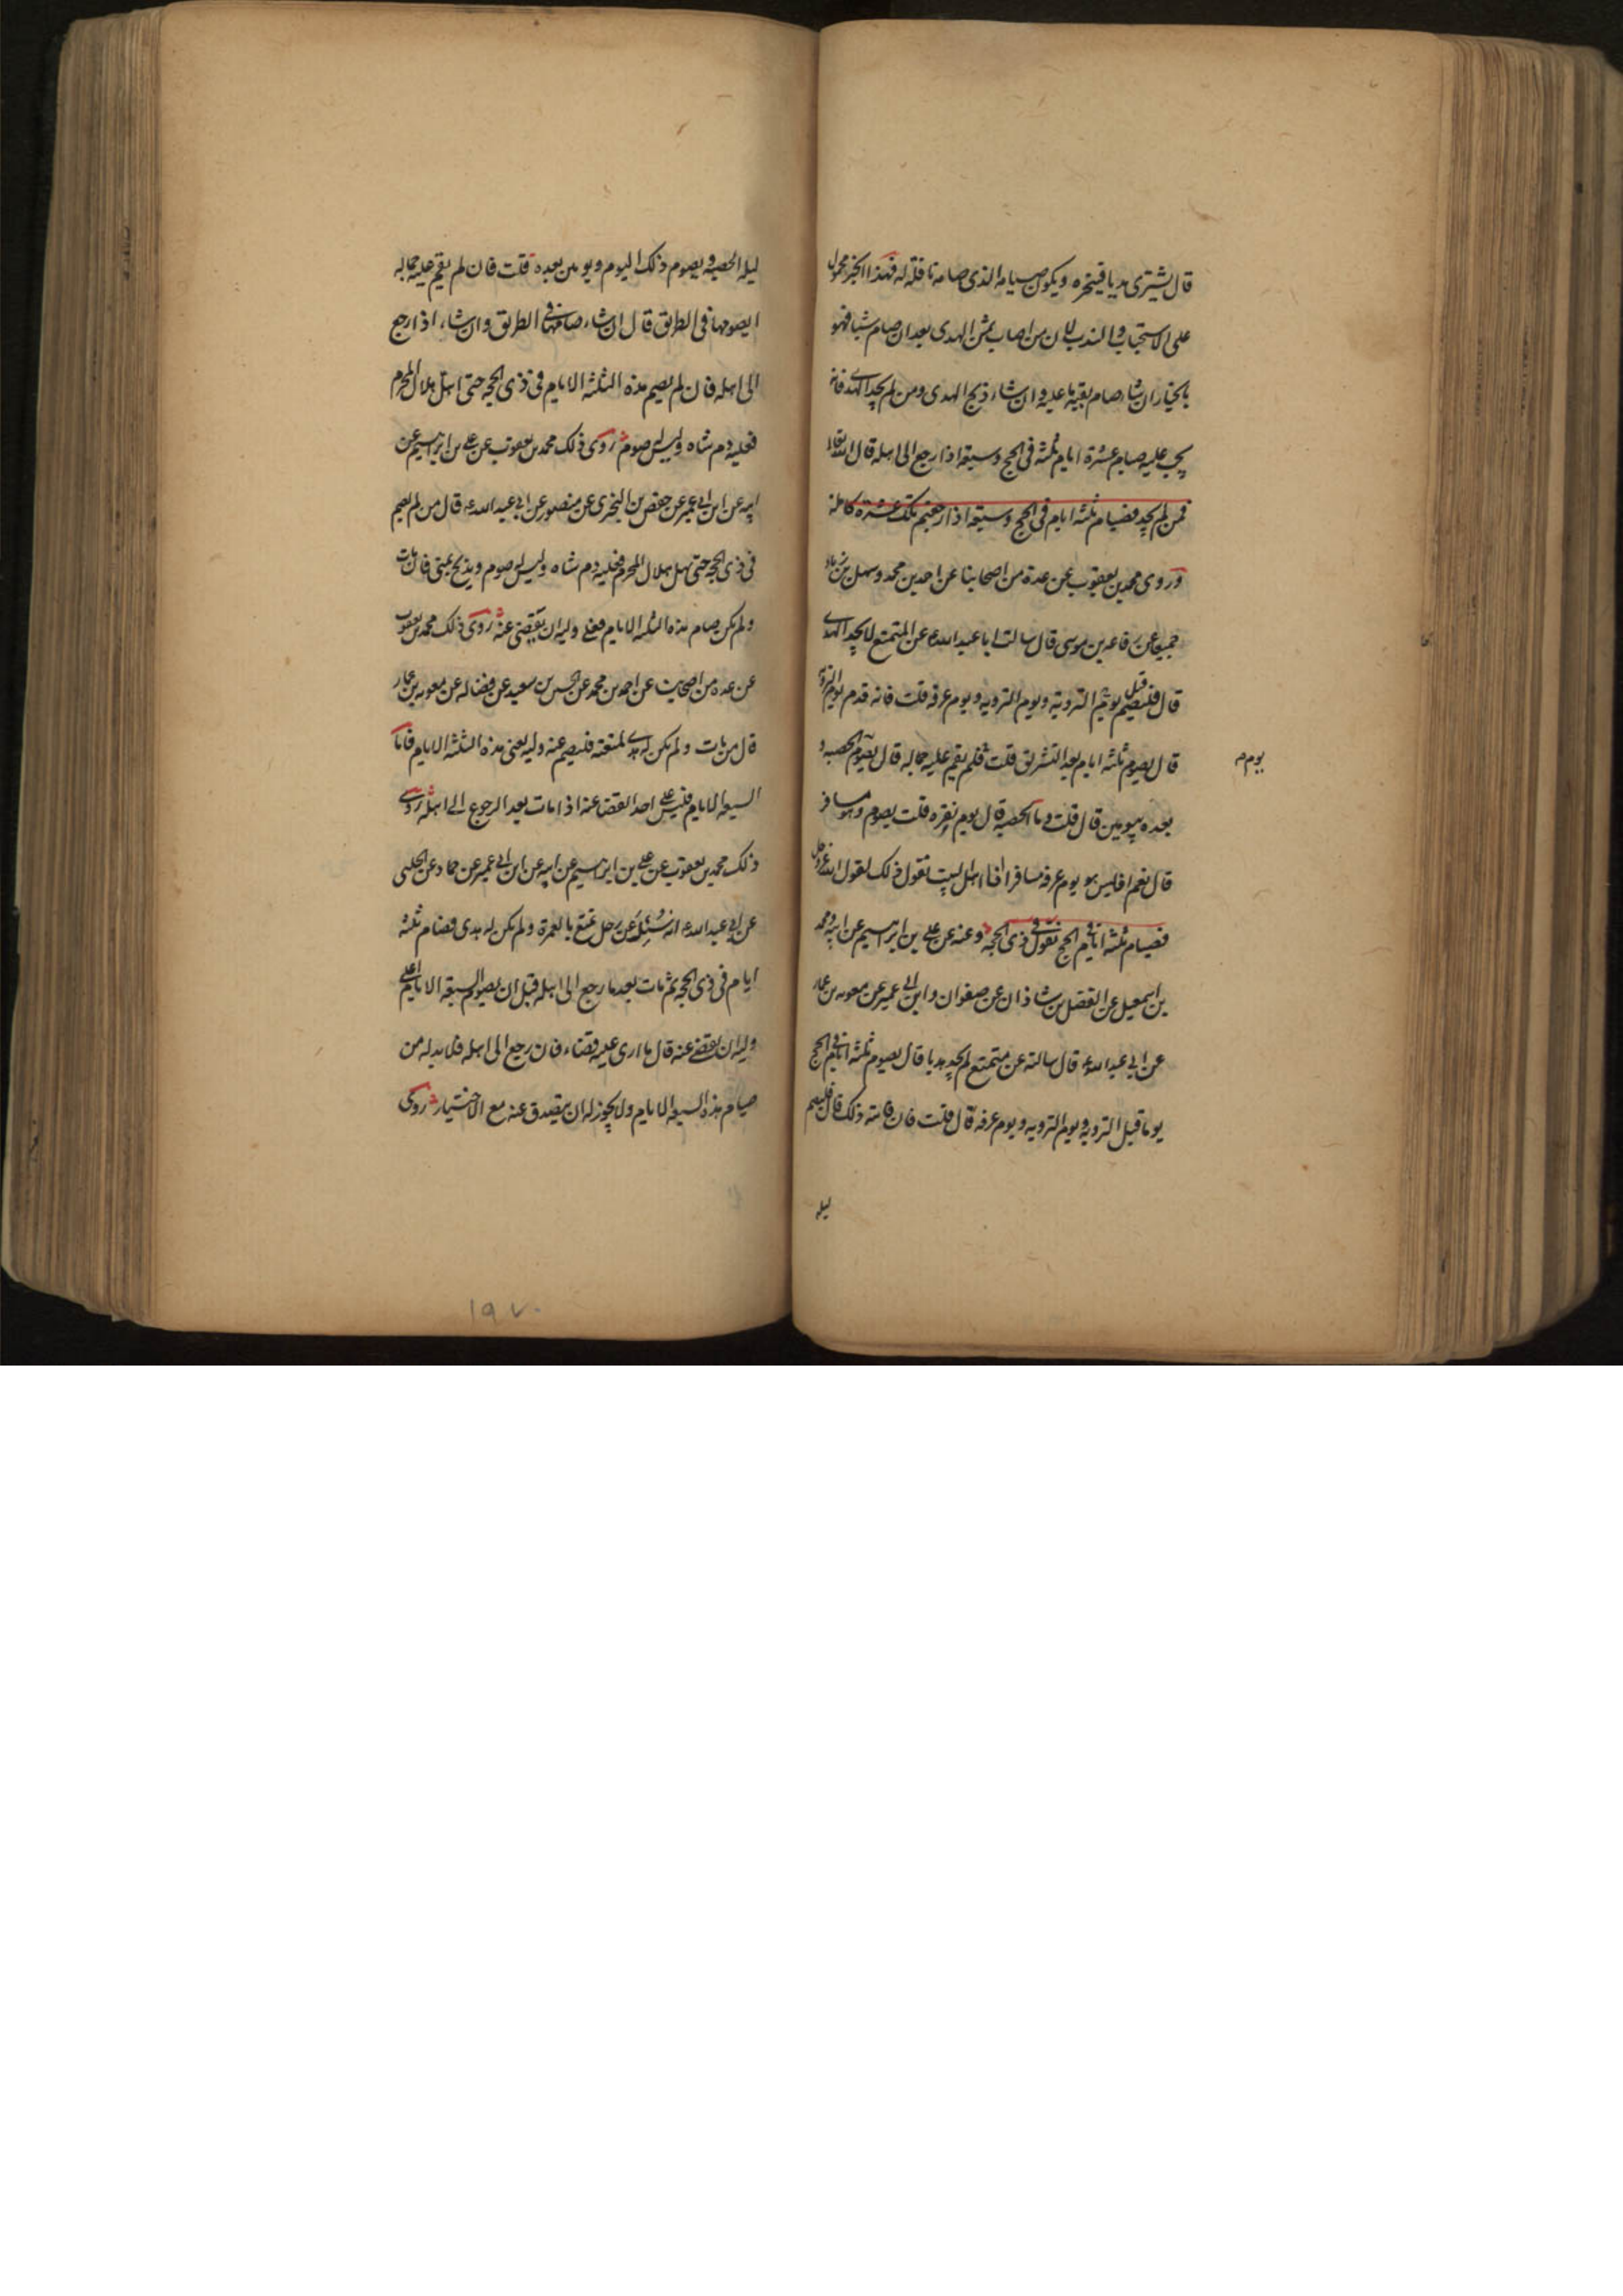 قال يشترى هديا فينحره ويكون صيامه الذى صامه نافلة له فهذا الخبر محمول
على الاستحباب والندب لان من اصاب ثمن الهدى بعد ان صام شيئا فهو
بالخيار ان شاء صام بقية ما عليه وان شاء ذبح الهدى ومن لم يجد الهدى فانه
يجب عليه صيام عشرة ايام ثلثة فى الحج وسبعة اذا رجع الى اهله قال الله تعالى
فمن لم يجد فصيام ثلثه ايام فى الحج وسبعة اذا رجعتم تلك عشرة كاملة
وروى محمد بن يعقوب عن عدة من اصحابنا عن احمد بن محمد وسهل بن زياد
جميعا عن رفاعه بن موسى قال سالت ابا عبد اللهء عن المتمتع لا يجد الهدى
قال فليصم قبل يوم التروية ويوم الترويه ويوم عرفه قلت فانه قدم يوم التروية
قال يصوم ثلثه ايام بعد التشريق قلت فلم يقم عليه جماله قال يصوم الحصبه و
يوم م
بعده بيومين قال قلت وما الحصبه قال يوم نفره قلت يصوم وهو مسافر
قال نعم افليس هو يوم عرفه مسافرا انا اهل بيت نقول ذلك لقول الله عز وجل
فصيام ثلثه ايام فى الحج نقول فى ذى الحجه وعنه عن على بن ابرهيم عن ابيه ومحمد
بن اسمعيل عن الفضل بن شاذان عن صفوان وابن ابى عمير عن معويه بن عمار
عن ابى عبد اللهء قال سالته عن متمتع لم يجد هديا قال يصوم ثلثه ايام فى الحج
يوما قبل الترويه ويوم الترويه ويوم عرفه قال قلت فان فاته ذلك قال فليصم
ليله
ليله الحصبه ويصوم ذلك اليوم ويومين بعده قلت فان لم يقم عليه جماله
ايصومها فى الطريق قال ان شاء صامها فى الطريق وان شاء اذا رجع
الى اهله فان لم يصم هذه الثلثه الايام فى ذى الحجه حتى اهل هلال المحرم
فعليه دم شاه وليس له صوم روى ذلك محمد بن يعقوب عن على بن ابرهيم عن
ابيه عن ابن ابى عمير عن حفص بن البخترى عن منصور عن ابى عبد اللهء قال من لم يصم
فى ذى الحجه حتى يهل هلال المحرم فعليه دم شاه وليس له صوم ويذبح بمنى فان مات
ولم يكن صام هذه الثلثه الايام فعلى وليه ان يقضى عنه روى ذلك محمد بن يعقوب
عن عده من اصحابنا عن احمد بن محمد عن الحسين بن سعيد عن فضاله عن معويه بن عمار
قال من مات ولم يكن له هدى لمتعته فليصم عنه وليه يعنى هذه الثلثة الايام فاما
السبعه الايام فليس على احد القضا عنه اذا مات بعد الرجوع الى اهله روى
ذلك محمد بن يعقوب عن على بن ابرهيم عن ابيه عن ابن ابى عمير عن حماد عن الحلبى
عن ابى عبد اللهء انه سُئِلَ عن رجل تمتع بالعمرة ولم يكن له هدى فصام ثلثه
ايام فى ذى الحجه ثم مات بعد ما رجع الى اهله قبل ان يصوم السبعة الايام اعلى
وليه ان يقضى عنه قال ما ارى عليه قضاء فان رجع الى اهله فلا بد له من
صيام هذه السبعه الايام ولا يجوز له ان يتصدق عنه مع الاختيار روى
۱۹۷۰